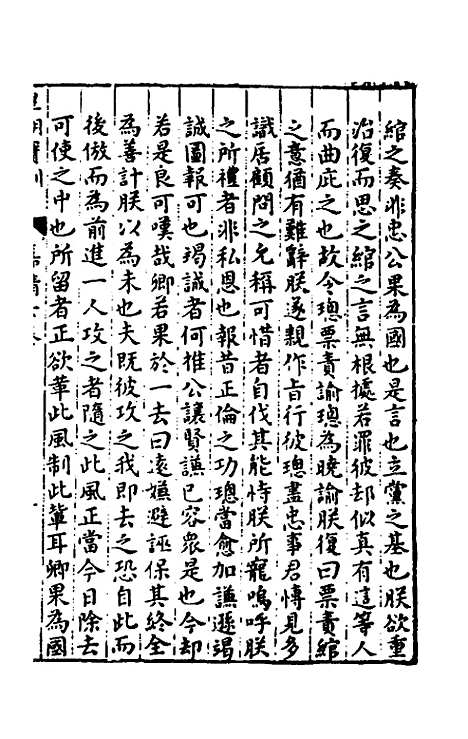 綰之奏非忠公果為國也是言也立黨之基也朕欲重
治復而思之綰之言無根據若罪彼却似真有這等人
而曲庇之也故令璁票責諭璁為曉諭朕復曰票責綰
之意猶有難辭朕遂親作旨行彼璁盡忠事君博見多
識居顧問之尤稱可惜者自伐其能恃朕所寵嗚呼朕
之所禮者非私恩也報昔正倫之功璁當愈加謙遜竭
誠圖報可也竭誠者何推公讓賢謙已容衆是也今却
若是良可嘆哉卿若果於一去曰遠嫌避誣保其終全
為善計朕以為未也夫既彼攻之我即去之恐自此而
後倣而為前進一人攻之者隨之此風正當今日除去
可使之中也所留者正欲革此風制此輩耳卿果為國